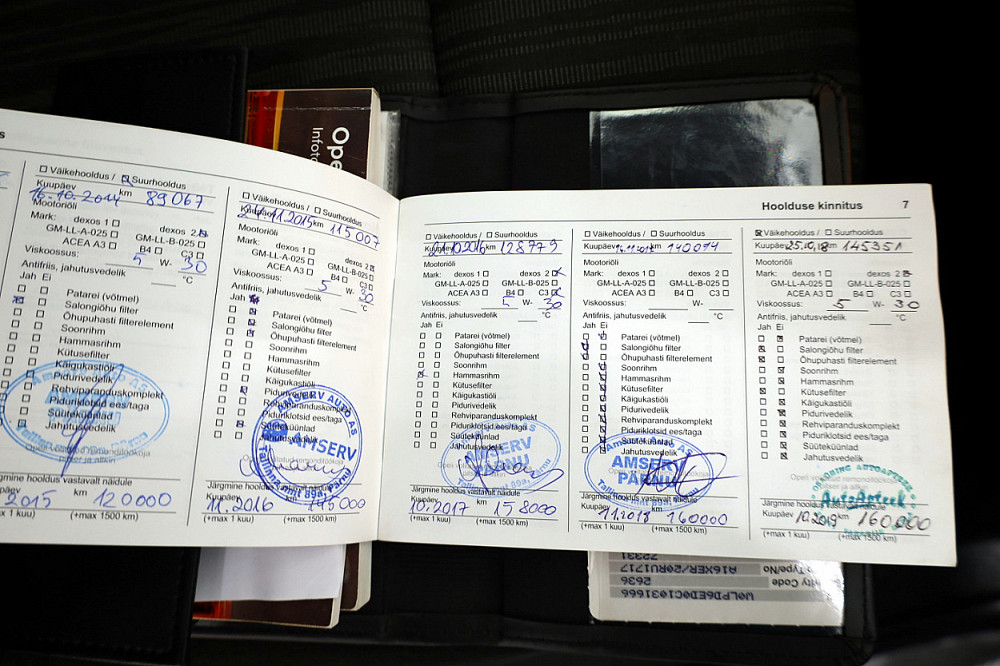 Ope
Infot
☐ Väikehooldus / ☒ Suurhooldus
Kuupäev 16.10.2014 km 89067
Mootoriõli
Mark: dexos 1 ☐ dexos 2 ☒
GM-LL-A-025 ☐ GM-LL-B-025 ☐
ACEA A3 ☐ B4 ☐ C3 ☐
Viskoossus: 5 W- 30
Antifriis, jahutusvedelik °C
Jah Ei
Patarei (võtmel)
Salongiõhu filter
Õhupuhasti filterelement
Soonrihm
Hammasrihm
Kütusefilter
Käigukastiõli
Pidurivedelik
Rehviparanduskomplekt
Piduriklotsid ees/taga
Süüteküünlad
Jahutusvedelik
Järgmine hooldus vastavalt näidule
2015 km 120000
(+max 1 kuu) (+max 1500 km)
☐ Väikehooldus / ☐ Suurhooldus
Kuupäev 24.11.2015 km 115007
Mootoriõli
Mark: dexos 1 ☐ dexos 2 ☒
GM-LL-A-025 ☐ GM-LL-B-025 ☐
ACEA A3 ☐ B4 ☐ C3 ☐
Viskoossus: 5 W- 30
Antifriis, jahutusvedelik °C
Jah Ei
Patarei (võtmel)
Salongiõhu filter
Õhupuhasti filterelement
Soonrihm
Hammasrihm
Kütusefilter
Käigukastiõli
Pidurivedelik
Rehviparanduskomplekt
Piduriklotsid ees/taga
Süüteküünlad
Jahutusvedelik
AMSERV AUTO AS
AMSERV
Tallinna mnt 89a, Pärnu
Järgmine hooldus vastavalt näidule
Kuupäev 11.2016 km 145000
(+max 1 kuu) (+max 1500 km)
Hoolduse kinnitus 7
☐ Väikehooldus / ☐ Suurhooldus
Kuupäev 21.10.2016 km 128779
Mootoriõli
Mark: dexos 1 ☐ dexos 2 ☒
GM-LL-A-025 ☐ GM-LL-B-025 ☐
ACEA A3 ☐ B4 ☐ C3 ☒
Viskoossus: 5 W- 30
Antifriis, jahutusvedelik °C
Jah Ei
Patarei (võtmel)
Salongiõhu filter
Õhupuhasti filterelement
Soonrihm
Hammasrihm
Kütusefilter
Käigukastiõli
Pidurivedelik
Rehviparanduskomplekt
Piduriklotsid ees/taga
Süüteküünlad
Jahutusvedelik
AMSERV
PÄRNU
Tallinna mnt 89a, Pärnu
Järgmine hooldus vastavalt näidule
Kuupäev 10.2017 km 158000
(+max 1 kuu) (+max 1500 km)
☐ Väikehooldus / ☐ Suurhooldus
Kuupäev 11.2017 km 140014
Mootoriõli
Mark: dexos 1 ☐ dexos 2 ☐
GM-LL-A-025 ☐ GM-LL-B-025 ☐
ACEA A3 ☐ B4 ☐ C3 ☐
Viskoossus: W-
Antifriis, jahutusvedelik °C
Jah Ei
Patarei (võtmel)
Salongiõhu filter
Õhupuhasti filterelement
Soonrihm
Hammasrihm
Kütusefilter
Käigukastiõli
Pidurivedelik
Rehviparanduskomplekt
Piduriklotsid ees/taga
Süüteküünlad
Jahutusvedelik
AMSERV
PÄRNU
Järgmine hooldus vastavalt näidule
Kuupäev 11.2018 km 160000
(+max 1 kuu) (+max 1500 km)
☒ Väikehooldus / ☐ Suurhooldus
Kuupäev 25.10.18 km 145351
Mootoriõli
Mark: dexos 1 ☐ dexos 2 ☒
GM-LL-A-025 ☐ GM-LL-B-025 ☐
ACEA A3 ☐ B4 ☐ C3 ☐
Viskoossus: 5 W- 30
Antifriis, jahutusvedelik °C
Jah Ei
Patarei (võtmel)
Salongiõhu filter
Õhupuhasti filterelement
Soonrihm
Hammasrihm
Kütusefilter
Käigukastiõli
Pidurivedelik
Rehviparanduskomplekt
Piduriklotsid ees/taga
Süüteküünlad
Jahutusvedelik
AutoApteek
Järgmine hooldus vastavalt näidule
Kuupäev 10.2019 km 160000
(+max 1 kuu) (+max 1500 km)
72331
Type/No A16XER/20RU1717
urity Code 2636
W0LPD6ED0C1031666